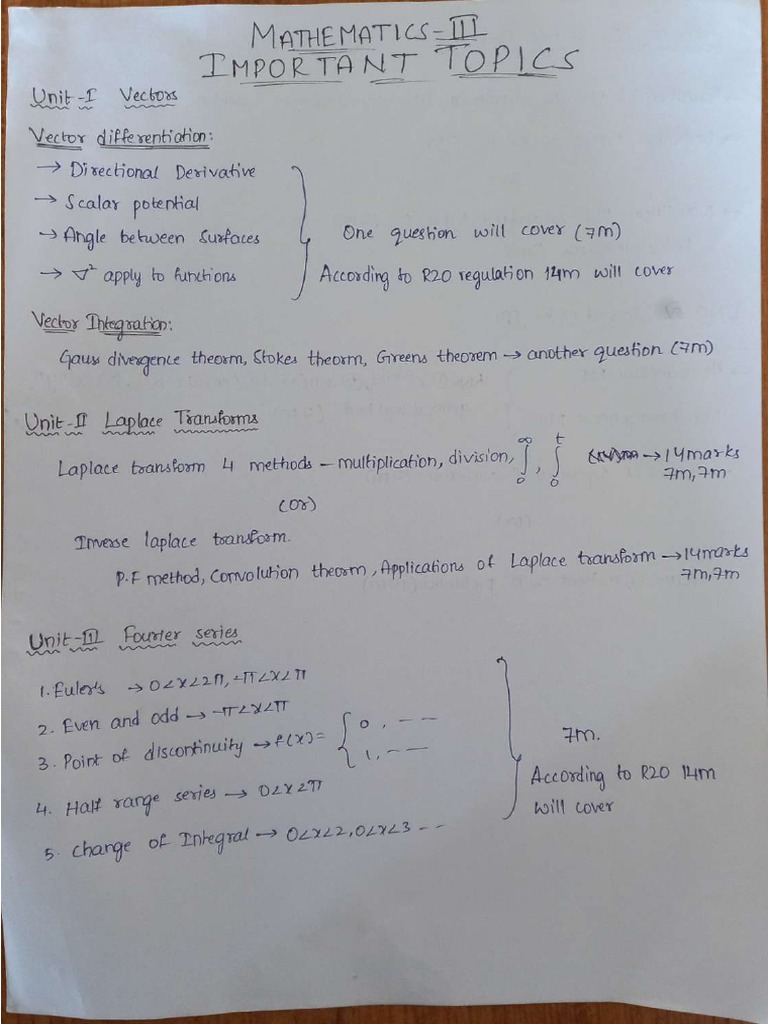 MATHEMATICS-III
IMPORTANT TOPICS
Unit-I Vectors
Vector differentiation:
→ Directional Derivative
→ Scalar potential
→ Angle between surfaces
→ ∇² apply to functions
One question will cover (7m)
According to R20 regulation 14m will cover
Vector Integration:
Gauss divergence theorm, Stokes theorm, Greens theorem → another question (7m)
Unit-II Laplace Transforms
Laplace transform 4 methods – multiplication, division, ∫₀^∞, ∫₀^t → 14marks
7m, 7m
(or)
Inverse laplace transform.
P.F method, Convolution theorm, Applications of Laplace transform → 14marks
7m, 7m
Unit-III Fourier series
1. Euler's → 0<x<2π, -π<x<π
2. Even and odd → -π<x<π
3. Point of discontinuity → f(x)= { 0, - –
1, - –
4. Half range series → 0<x<π
5. change of Integral → 0<x<2, 0<x<3 - -
7m.
According to R20 14m
will cover